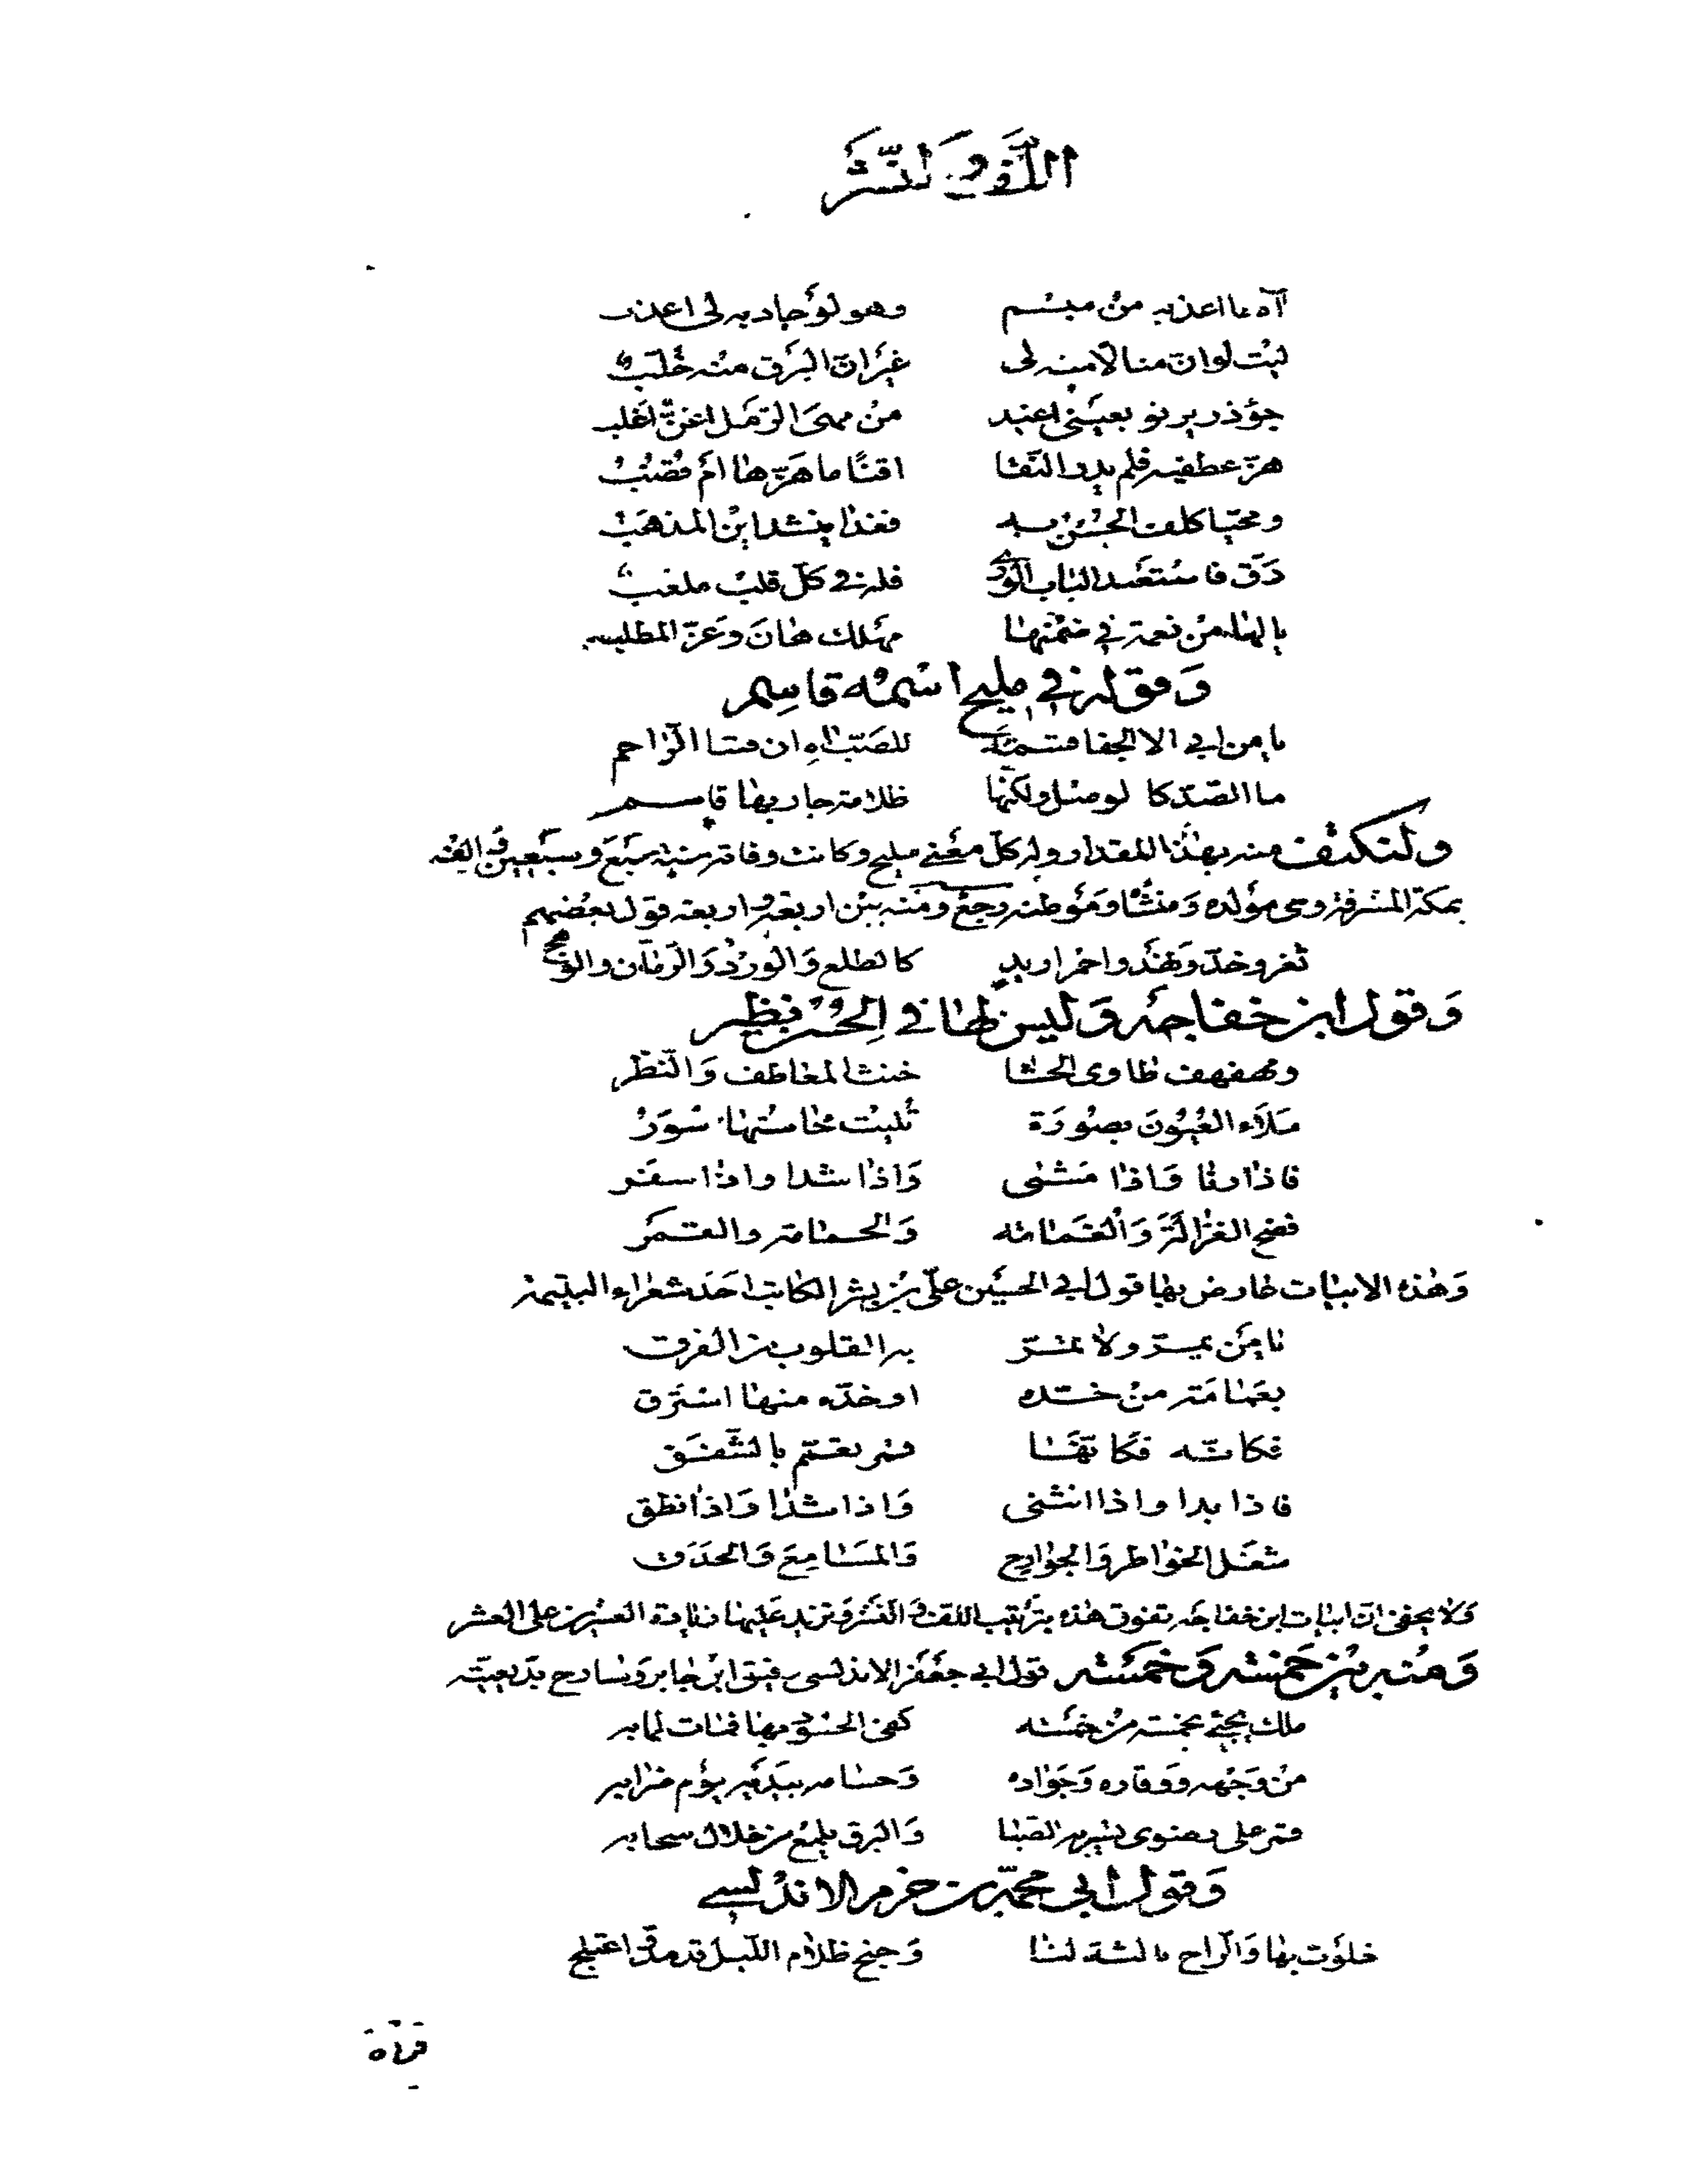 اللف والنشر
آه ما اعذبه من مبسم وهو لو جاد به لى اعذب
ليت لو ان منالا منه لى غير ان البرق منه خلب
جؤذر يرنو بعينى اغيد من مهى الرمل اغن اغلب
هز عطفيه فلم يدر النقا اقنا ما هز ها ام قضب
ومحيا كلف الحسن به فغدا ينشد اين المذهب
دق فاستعبد الباب الورى فله فى كل قلب ملعب
يا لها من نعمة فى ضمنها مهلك هان وعز المطلب
وقوله فى مليح اسمه قاسم
يا من ابى الا الجفا قسمة للصب اه ان متا الراحم
ما الصد كالوصل ولكنها ظلامة جار بها قاسم
ولنكتف منه بهذا المقدار وله كل معنى مليح وكانت وفاته سنة سبع وسبعين والف
بمكة المشرفة وهى مولده ومنشا وموطنه رجع ومنه بين اربعة واربعة قول بعضهم
ثغر وخد ونهد واحمرار يد كالطلع والورد والرمان والبلح
وقول ابن خفاجه وليس لها فى الحسن نظير
ومهفهف طاوى الحشا خنث المعاطف والنظر
ملاء العيون بصورة تليت محاسنها سور
فاذا رنا واذا مشى واذا شدا واذا سفر
فضح الغزالة والغمامه والحمامة والقمر
وهذه الابيات عارض بها قول ابى الحسين على بن بشر الكاتب احد شعراء اليتيمة
يا من يمر ولا تمر به القلوب من الفرق
بعمامة من خده او خده منها استرق
فكانه فكانها قمر يعتم بالشفق
فاذا بدا واذا انثنى واذا شدا واذا نطق
شغل الخواطر والجوارح والمسامع والحدق
ولا يخفى ان ابيات ابن خفاجه تفوق هذه بترتيب اللف والنشر وتزيد عليها زيادة العشرين على العشر
ومنه بين خمسة وخمسة قول ابى جعفر الاندلسى رفيق ابن جابر وشارح بديعيته
ملك يجئ بخمسة من خمسه كفى الحسود بها فمات لما به
من وجهه ووقاره وجواده وحسامه بيديه يوم ضرابه
قمر على رضوى تسير به الصبا والبرق يلمع من خلال سحابه
وقول ابى محمد بن حزم الاندلسى
خلوت بها والراح ثالثة لنا وجنح ظلام الليل قد مد واعتلج
فتاة